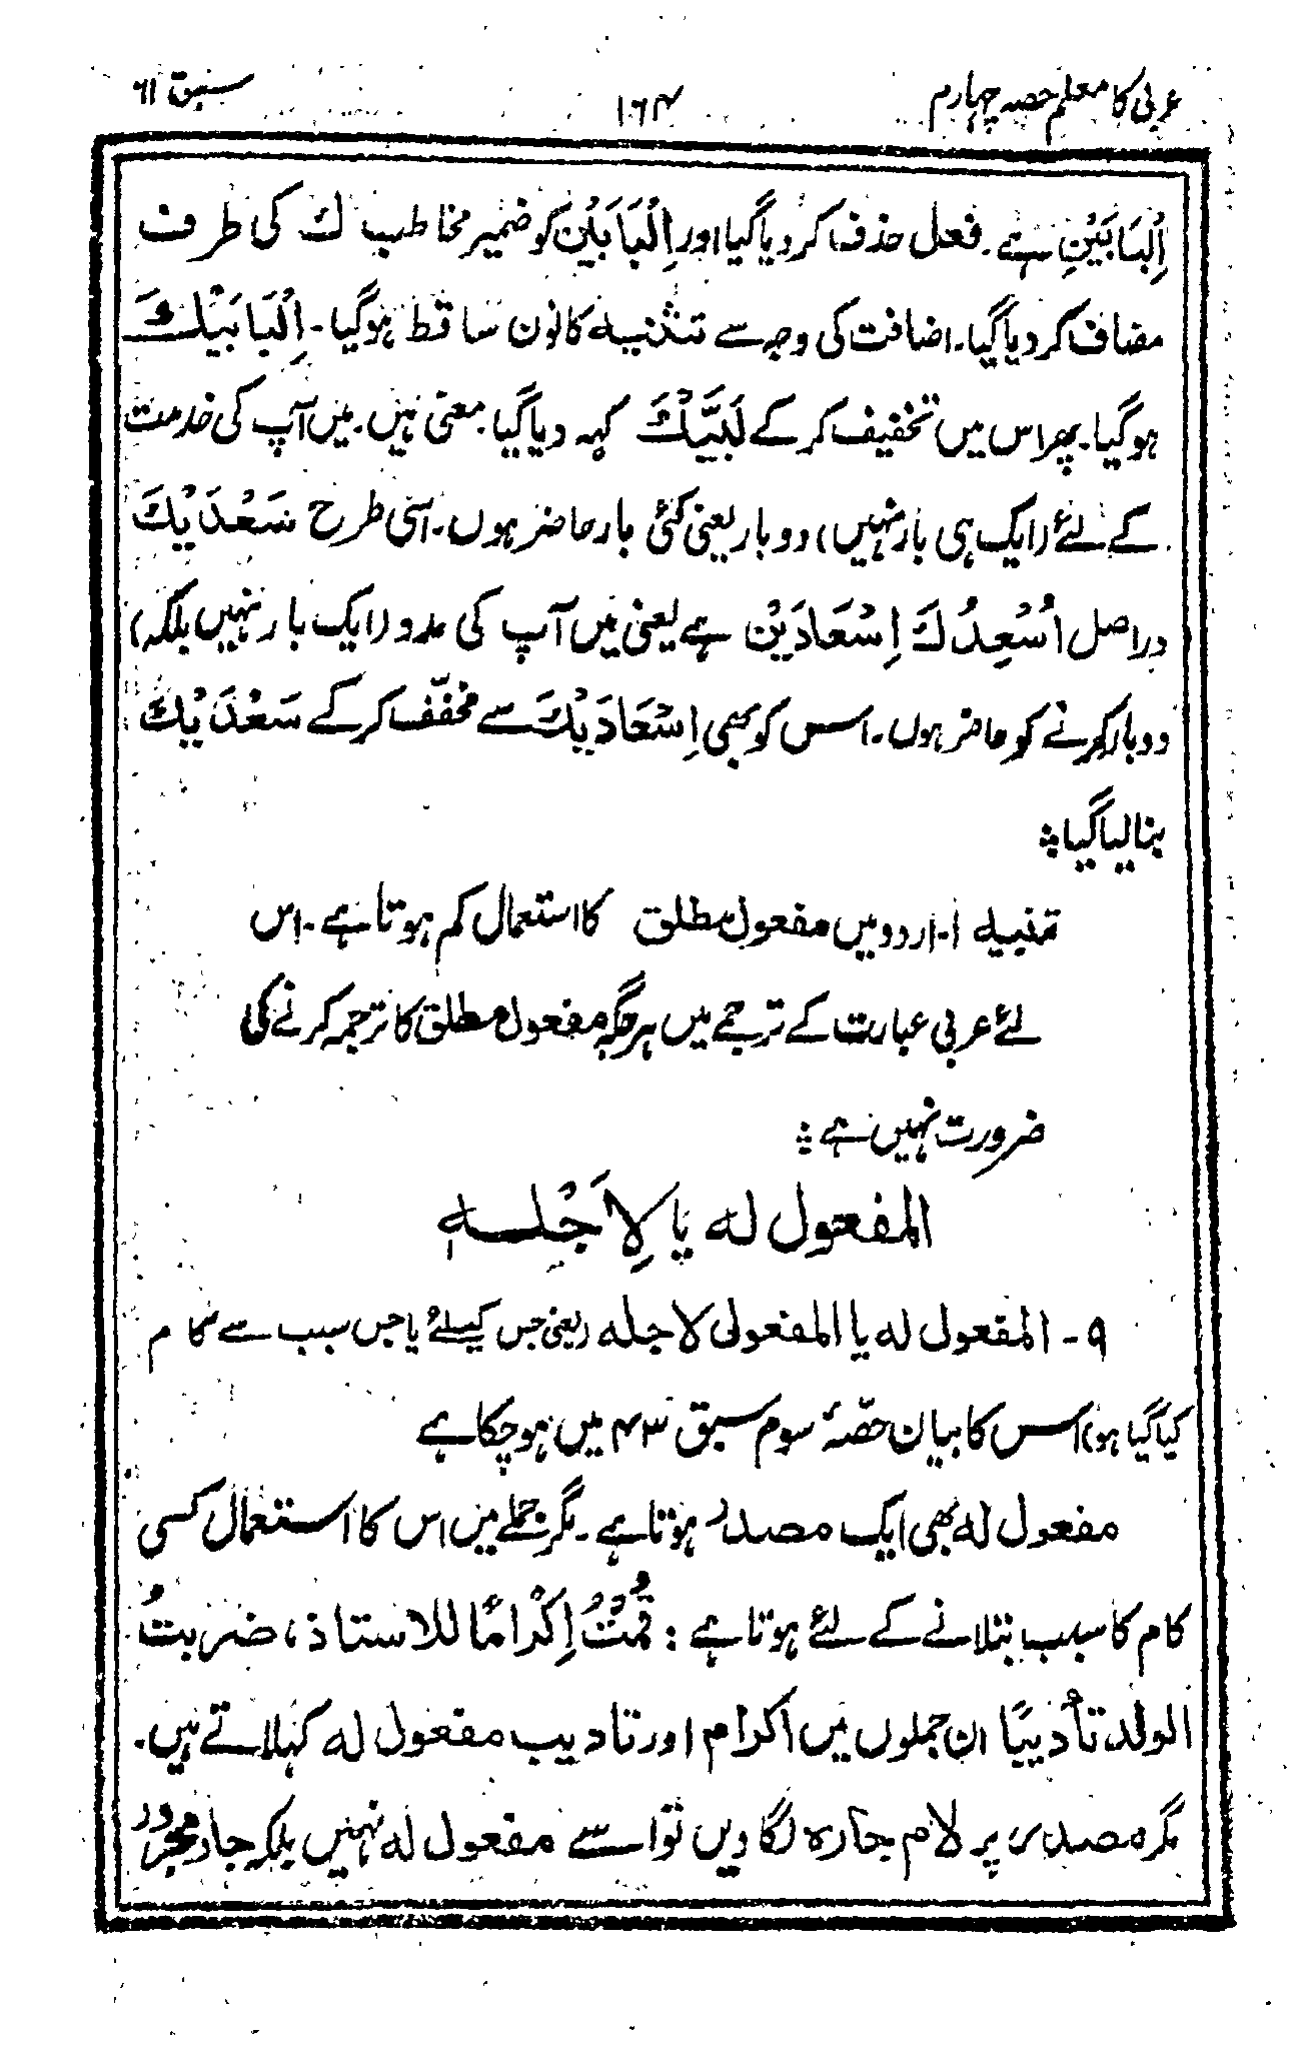 عربی کا معلم حصہ چہارم
۱۶۴
سبق ۶۱
اِلْبَابَيْنِ ہے۔ فعل حذف کر دیا گیا اور اِلْبَابَيْن کو ضمیر مخاطب ك کی طرف
مضاف کر دیا گیا۔ اضافت کی وجہ سے تثنیہ کا نون ساقط ہوگیا۔ اِلْبَابَيْكَ
ہوگیا۔ پھر اس میں تخفیف کر کے لَبَّيْكَ کہہ دیا گیا۔ معنی ہیں۔ میں آپ کی خدمت
کے لئے (ایک ہی بار نہیں) دو بار یعنی کئی بار حاضر ہوں۔ اسی طرح سَعْدَيْكَ
دراصل اُسْعِدُكَ اِسْعَادَيْن ہے یعنی میں آپ کی مدد (ایک بار نہیں بلکہ)
دو بار کرنے کو حاضر ہوں۔ اس کو بھی اِسْعَادَيْكَ سے مخفّف کر کے سَعْدَيْكَ
بنا لیا گیا ؞
تنبیہ ۱۔ اردو میں مفعول مطلق کا استعمال کم ہوتا ہے۔ اس
لئے عربی عبارت کے ترجمے میں ہر جگہ مفعول مطلق کا ترجمہ کرنے کی
ضرورت نہیں ہے ؞
المفعول له یا لِاَجْلِه
۹۔ المفعول له یا المفعول لاجله (یعنی جس کیلئے یا جس سبب سے کام
کیا گیا ہو) اس کا بیان حصّۂ سوم سبق ۴۳ میں ہو چکا ہے
مفعول له بھی ایک مصدر ہوتا ہے۔ مگر جملے میں اس کا استعمال کسی
کام کا سبب بتلانے کے لئے ہوتا ہے : قُمْتُ اِكْرَامًا للاستاذ، ضربتُ
الولد تأديبًا ان جملوں میں اکرام اور تادیب مفعول له کہلاتے ہیں۔
مگر مصدر پر لام جارہ لگا دیں تو اسے مفعول له نہیں بلکہ جار مجرور